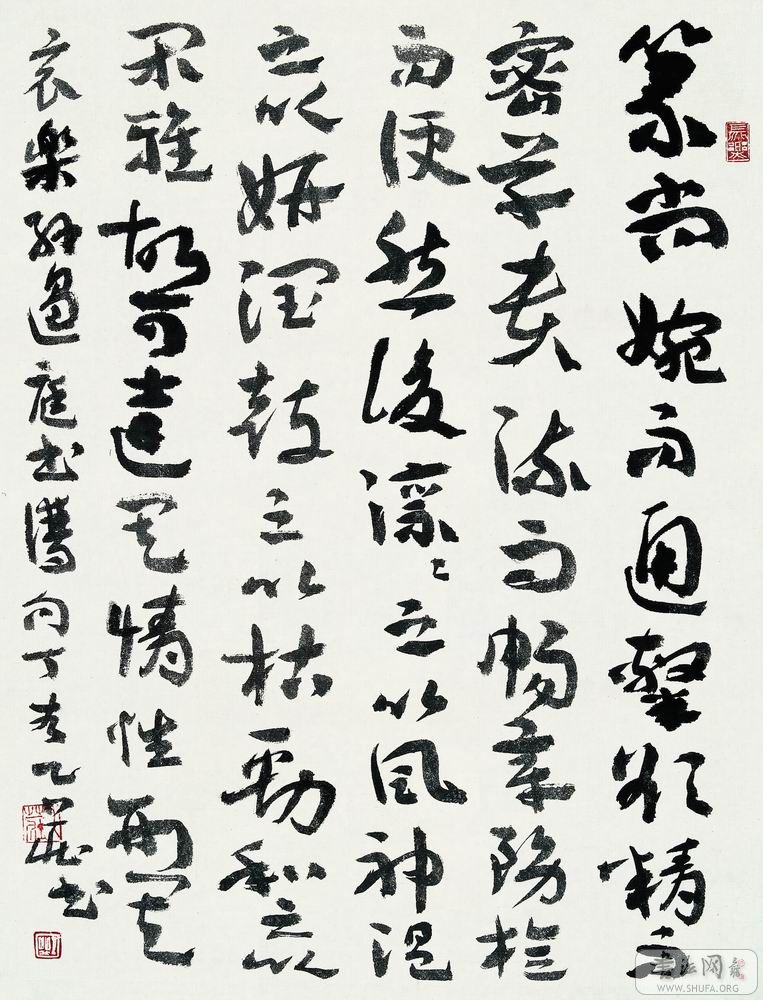 篆尚婉而通隸欲精而
密草貴流而暢章務檢
而便然後凜之以風神溫
之以妍潤鼓之以枯勁和之以
閑雅故可達其情性形其
哀樂孫過庭書譜句丁亥書
书法网
WWW.SHUFA.ORG